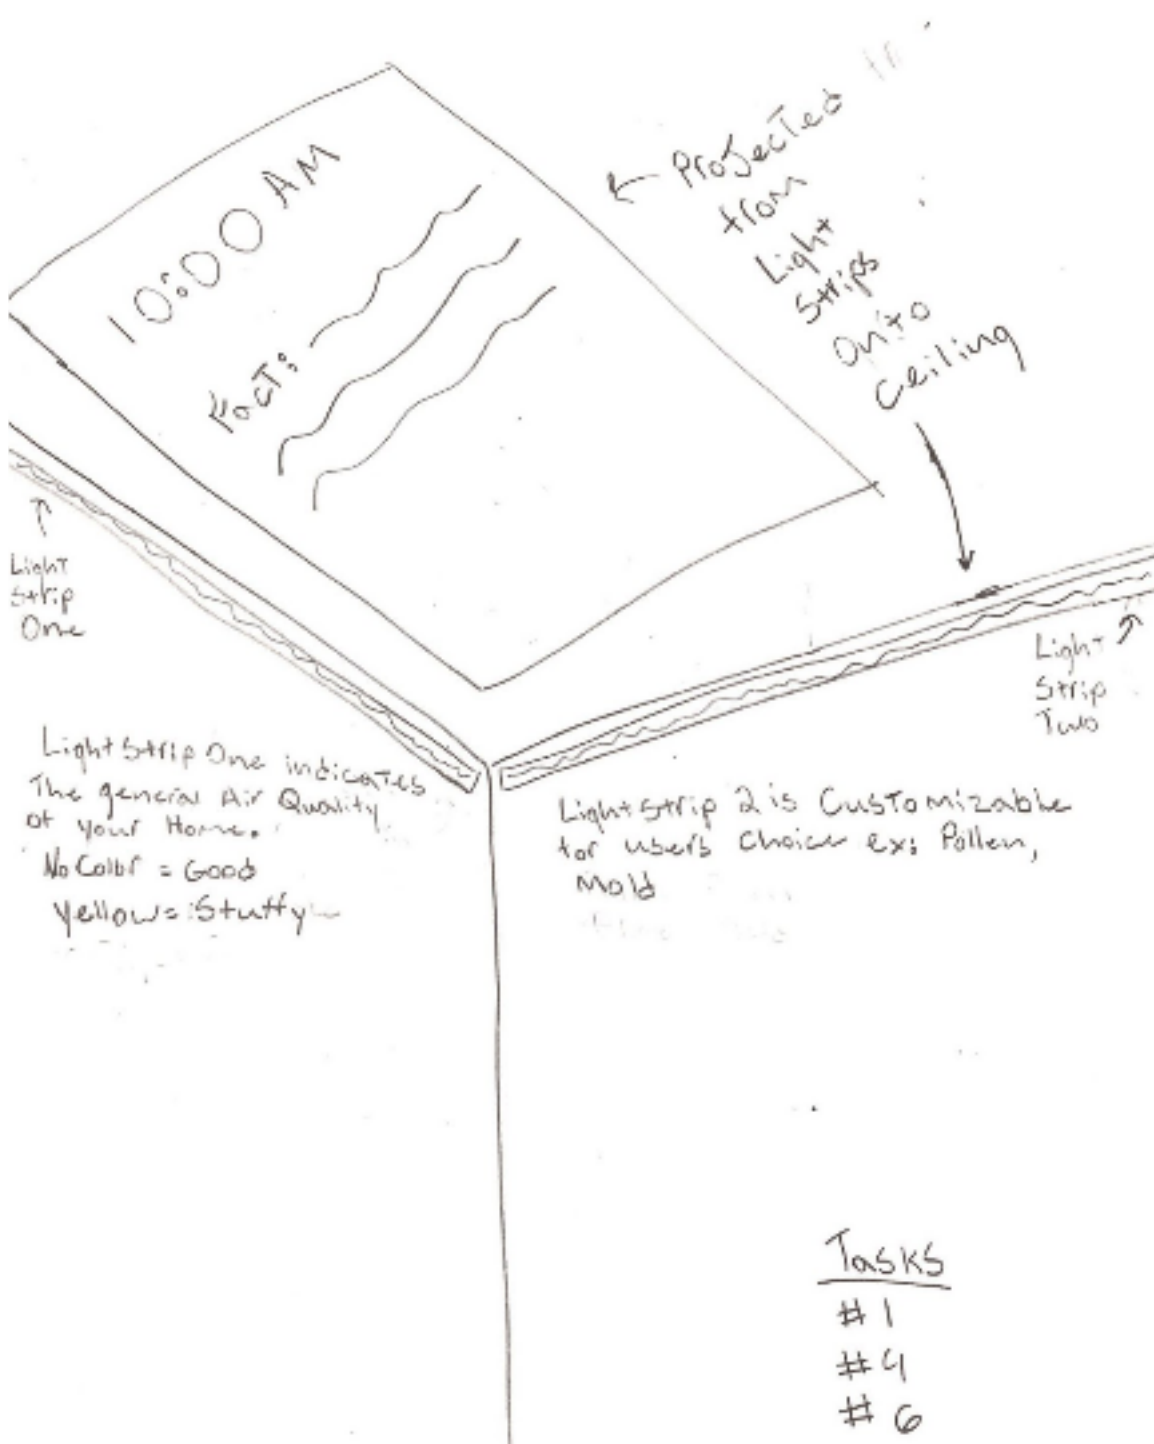 10:00 AM
Fact:
← Projected
from
Light
Strips
Onto
Ceiling
Light
Strip
One
Light
Strip
Two
Light Strip One indicates
The general Air Quality
of your Home.
No Color = Good
Yellow = Stuffy
Light Strip 2 is Customizable
for users choice ex: Pollen,
Mold
Tasks
#1
#4
#6